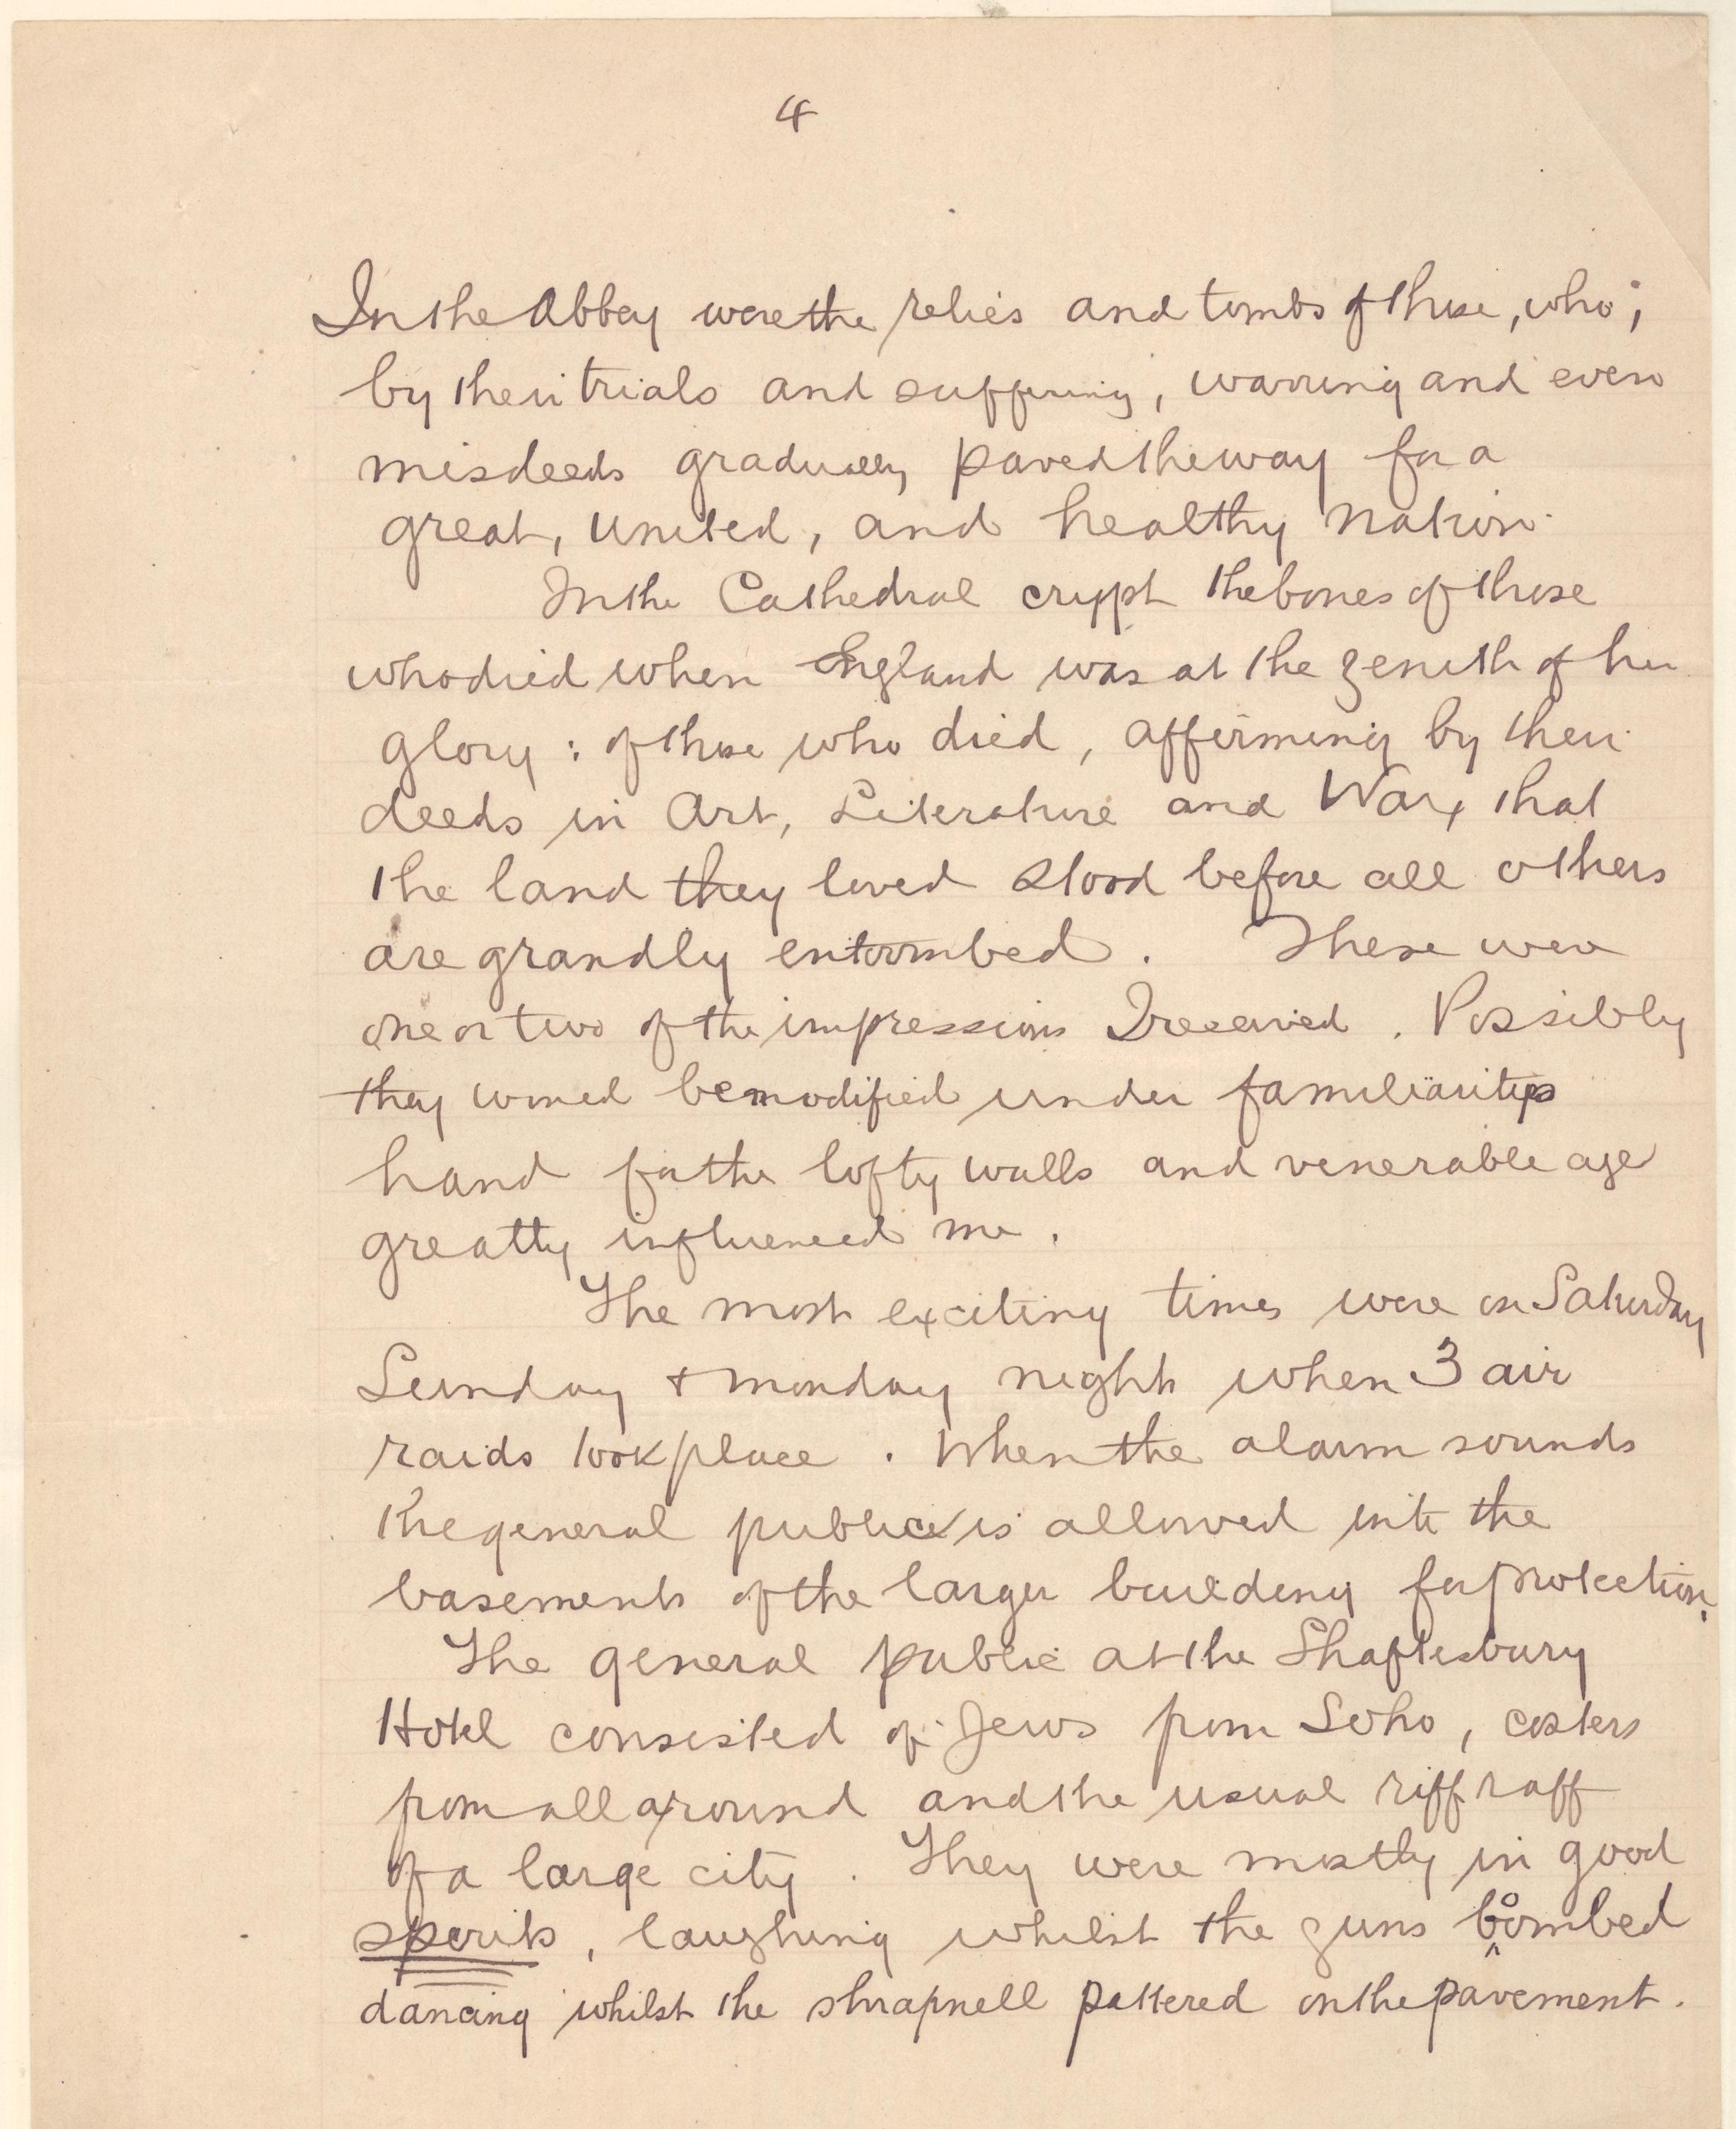 4
In the Abbey were the relics and tombs of those, who,
by their trials and suffering, warring and even
misdeeds gradually paved the way for a
great, united, and healthy nation.
In the Cathedral crypt the bones of those
who died when England was at the zenith of her
glory : of those who died, affirming by their
deeds in Art, Literature and War, that
the land they loved stood before all others
are grandly entombed. These were
one or two of the impressions I received. Possibly
they would be modified under familiarity's
hand for the lofty walls and venerable age
greatly influenced me.
The most exciting times were on Saturday
Sunday + Monday night when 3 air
raids took place. When the alarm sounds
the general public is allowed into the
basements of the larger building for protection.
The general public at the Shaftesbury
Hotel consisted of Jews from Soho, costers
from all around and the usual riff raff
of a large city. They were mostly in good
spirits, laughing whilst the guns boombed
dancing whilst the shrapnell pattered on the pavement.